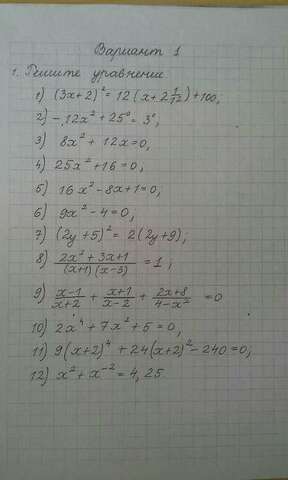 Вариант 1
1. Решите уравнение
1) (3x+2)² = 12(x+2 1/12)+100,
2) -12x² + 25⁰ = 3⁰,
3) 8x² + 12x=0,
4) 25x² +16=0,
5) 16x² -8x+1=0,
6) 9x² -4=0,
7) (2y+5)² = 2(2y+9);
8) (2x² + 3x+1)/((x+1)(x-3)) = 1;
9) (x-1)/(x+2) + (x+1)/(x-2) + (2x+8)/(4-x²) = 0
10) 2x⁴ +7x² +5=0,
11) 9(x+2)⁴ +24(x+2)² -240=0,
12) x² + x⁻² = 4,25.